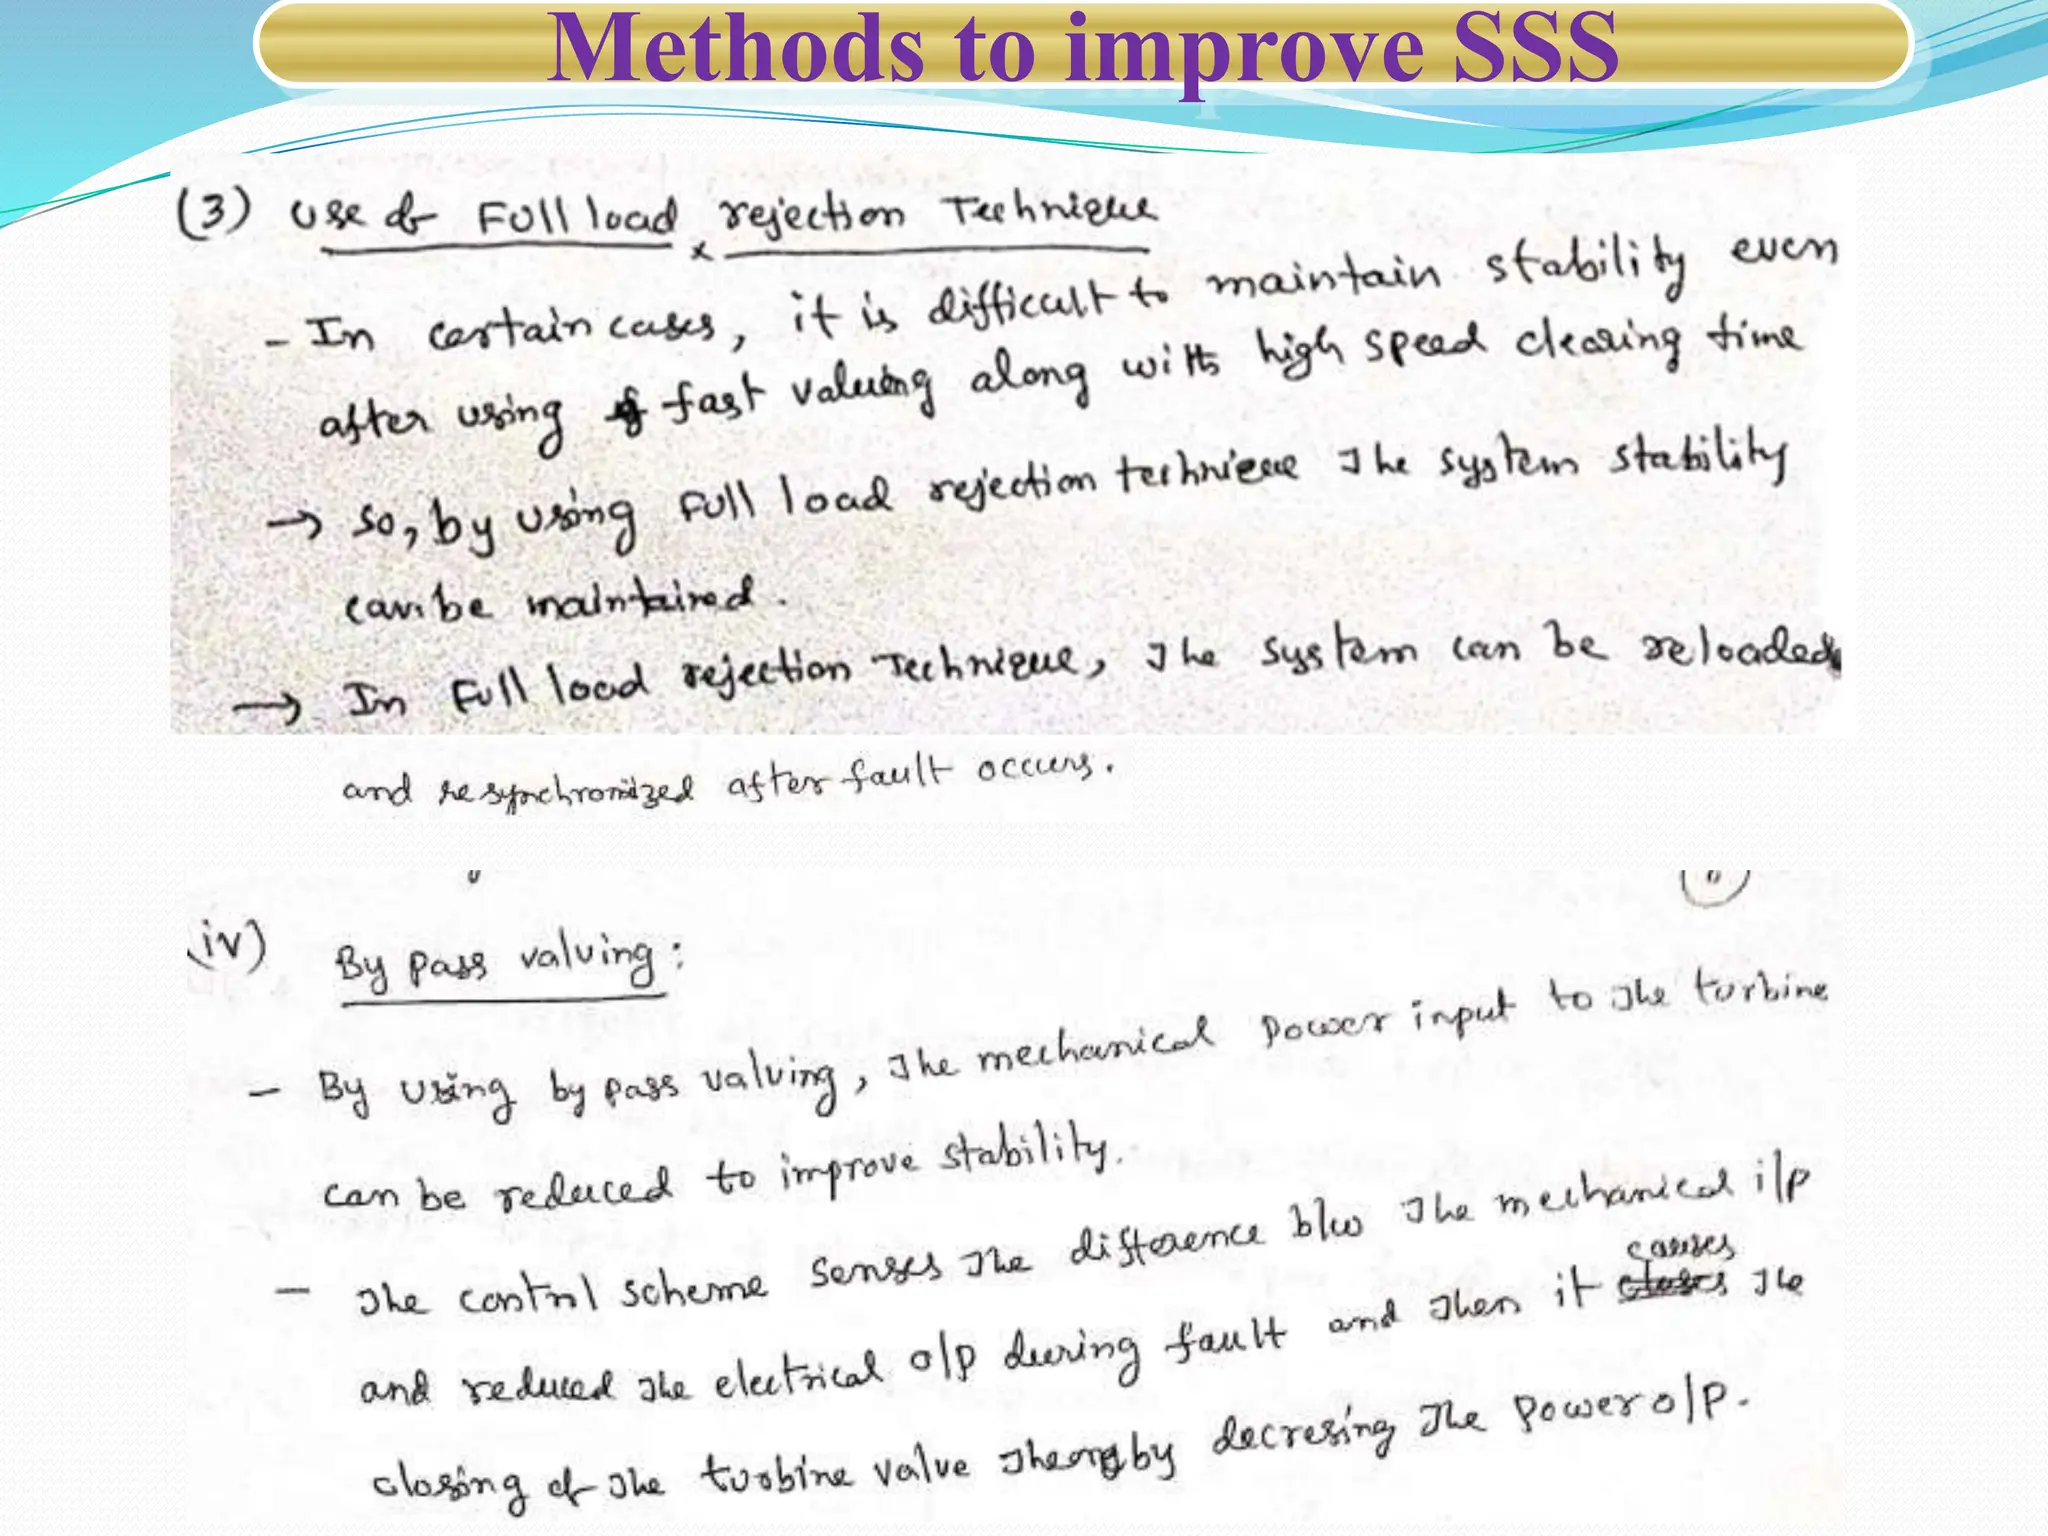 Methods to improve SSS
(3) Use of Full load rejection Technique
- In certain cases, it is difficult to maintain stability even
after using fast valuing along with high speed clearing time
→ so, by using Full load rejection technique The system stability
can be maintained.
→ In Full load rejection Technique, The system can be reloaded
and resynchronized after fault occurs.
(iv) By pass valving :
- By using by pass valving, The mechanical power input to The turbine
can be reduced to improve stability.
- The control scheme senses The difference b/w The mechanical i/p
causes
and reduced The electrical o/p during fault and Then it closes The
closing of The turbine valve Thereby decresing The Power o/p.